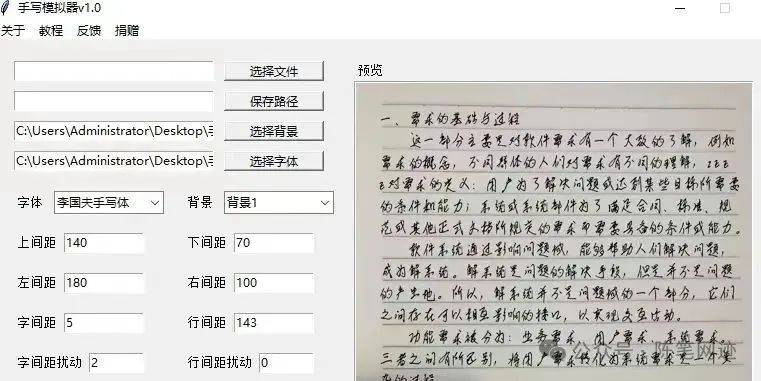 手写模拟器v1.0
关于 教程 反馈 捐赠
选择文件
保存路径
C:\Users\Administrator\Desktop\手 选择背景
C:\Users\Administrator\Desktop\手 选择字体
字体 李国夫手写体 背景 背景1
上间距 140 下间距 70
左间距 180 右间距 100
字间距 5 行间距 143
字间距扰动 2 行间距扰动 0
预览
一、需求的基础与过程
这一部分主要是对软件需求有一个大致的了解，例如
需求的概念，不同群体的人们对需求有不同的理解，IEE
E对需求的定义：用户为了解决问题或达到某些目标所需要
的条件和能力；系统或系统部件为了满足合同、标准、规
范或其他正式文档所规定的需求而需要具备的条件或能力。
软件系统通过影响问题域，能够帮助人们解决问题，
成为解系统。解系统是问题的解决手段，但是并不是问题
的产生地。所以，解系统并不是问题域的一个部分，它们
之间存在可以相互影响的接口，以实现交互活动。
功能需求被分为：业务需求，用户需求，系统需求。
三者之间有所区别，将用户需求转化为系统需求是一个复
杂的过程
公众号·陈笔网迹